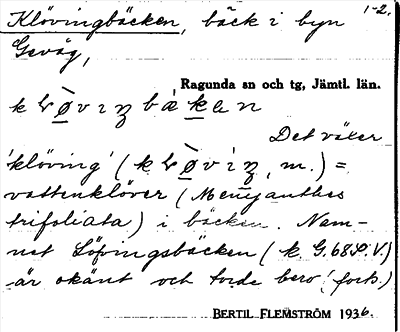 Klövingbäcken, bäck i byn 1-2.
Gevåg,
Ragunda sn och tg, Jämtl. län.
Det växer
'klöving' ( m.) =
vattenklöver (Menyanthes
trifoliata) i bäcken. Nam-
net Löfvingsbäcken (k. G. 68 S. V.)
är okänt och torde bero (forts.)
BERTIL FLEMSTRÖM 1936.